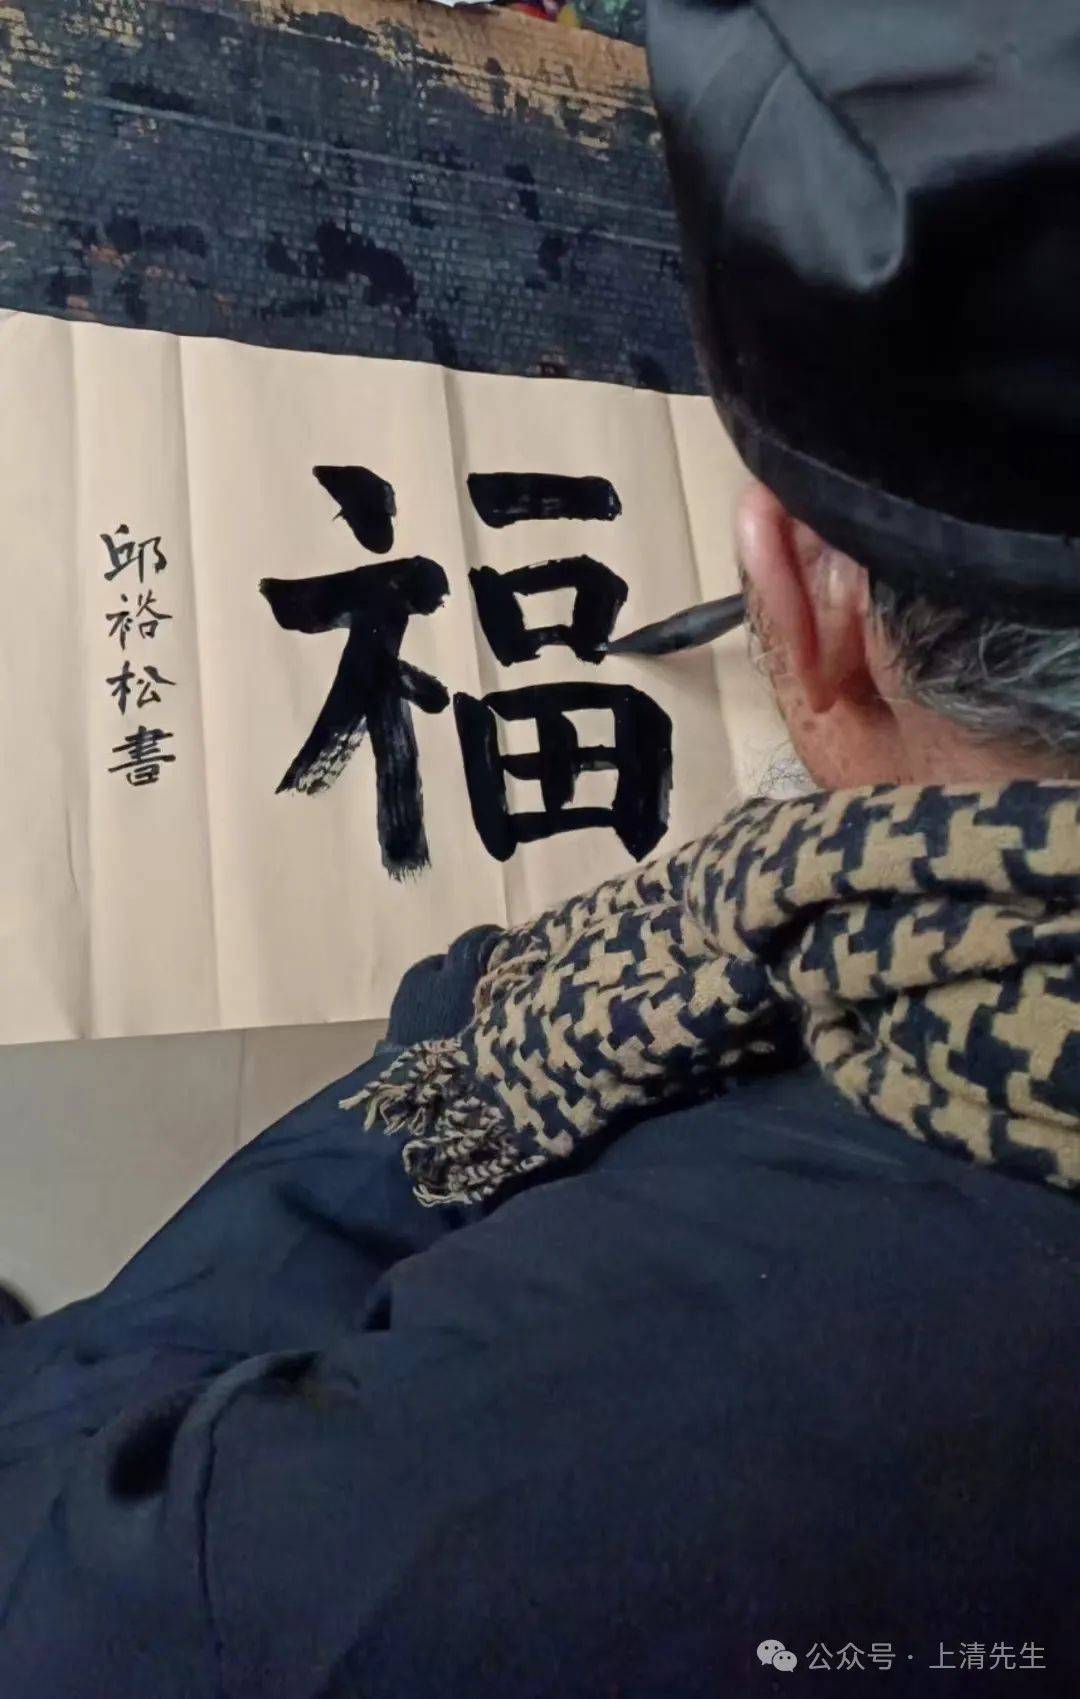 福
邱裕松書
公众号·上清先生